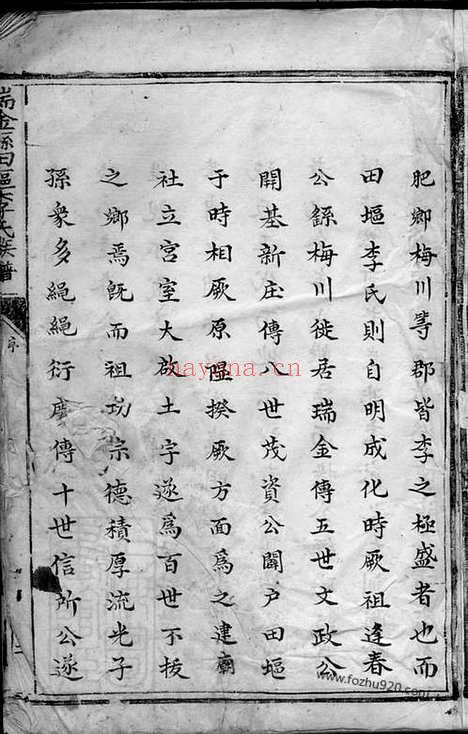 肥鄉梅川等郡皆李之極盛者也而
田塸李氏則自明成化時厥祖逢春
公繇梅川徙居瑞金傳五世文政公
開基新庄傳八世茂資公闢戶田塸
于時相厥原隰揆厥方面爲之建廟
社立宮室大啟土宇遂爲百世不拔
之鄉焉旣而祖功宗德積厚流光子
孫衆多繩繩衍慶傳十世信所公遂
瑞金縣田塸李氏族譜
序
nayona.cn
www.fozhu920.com